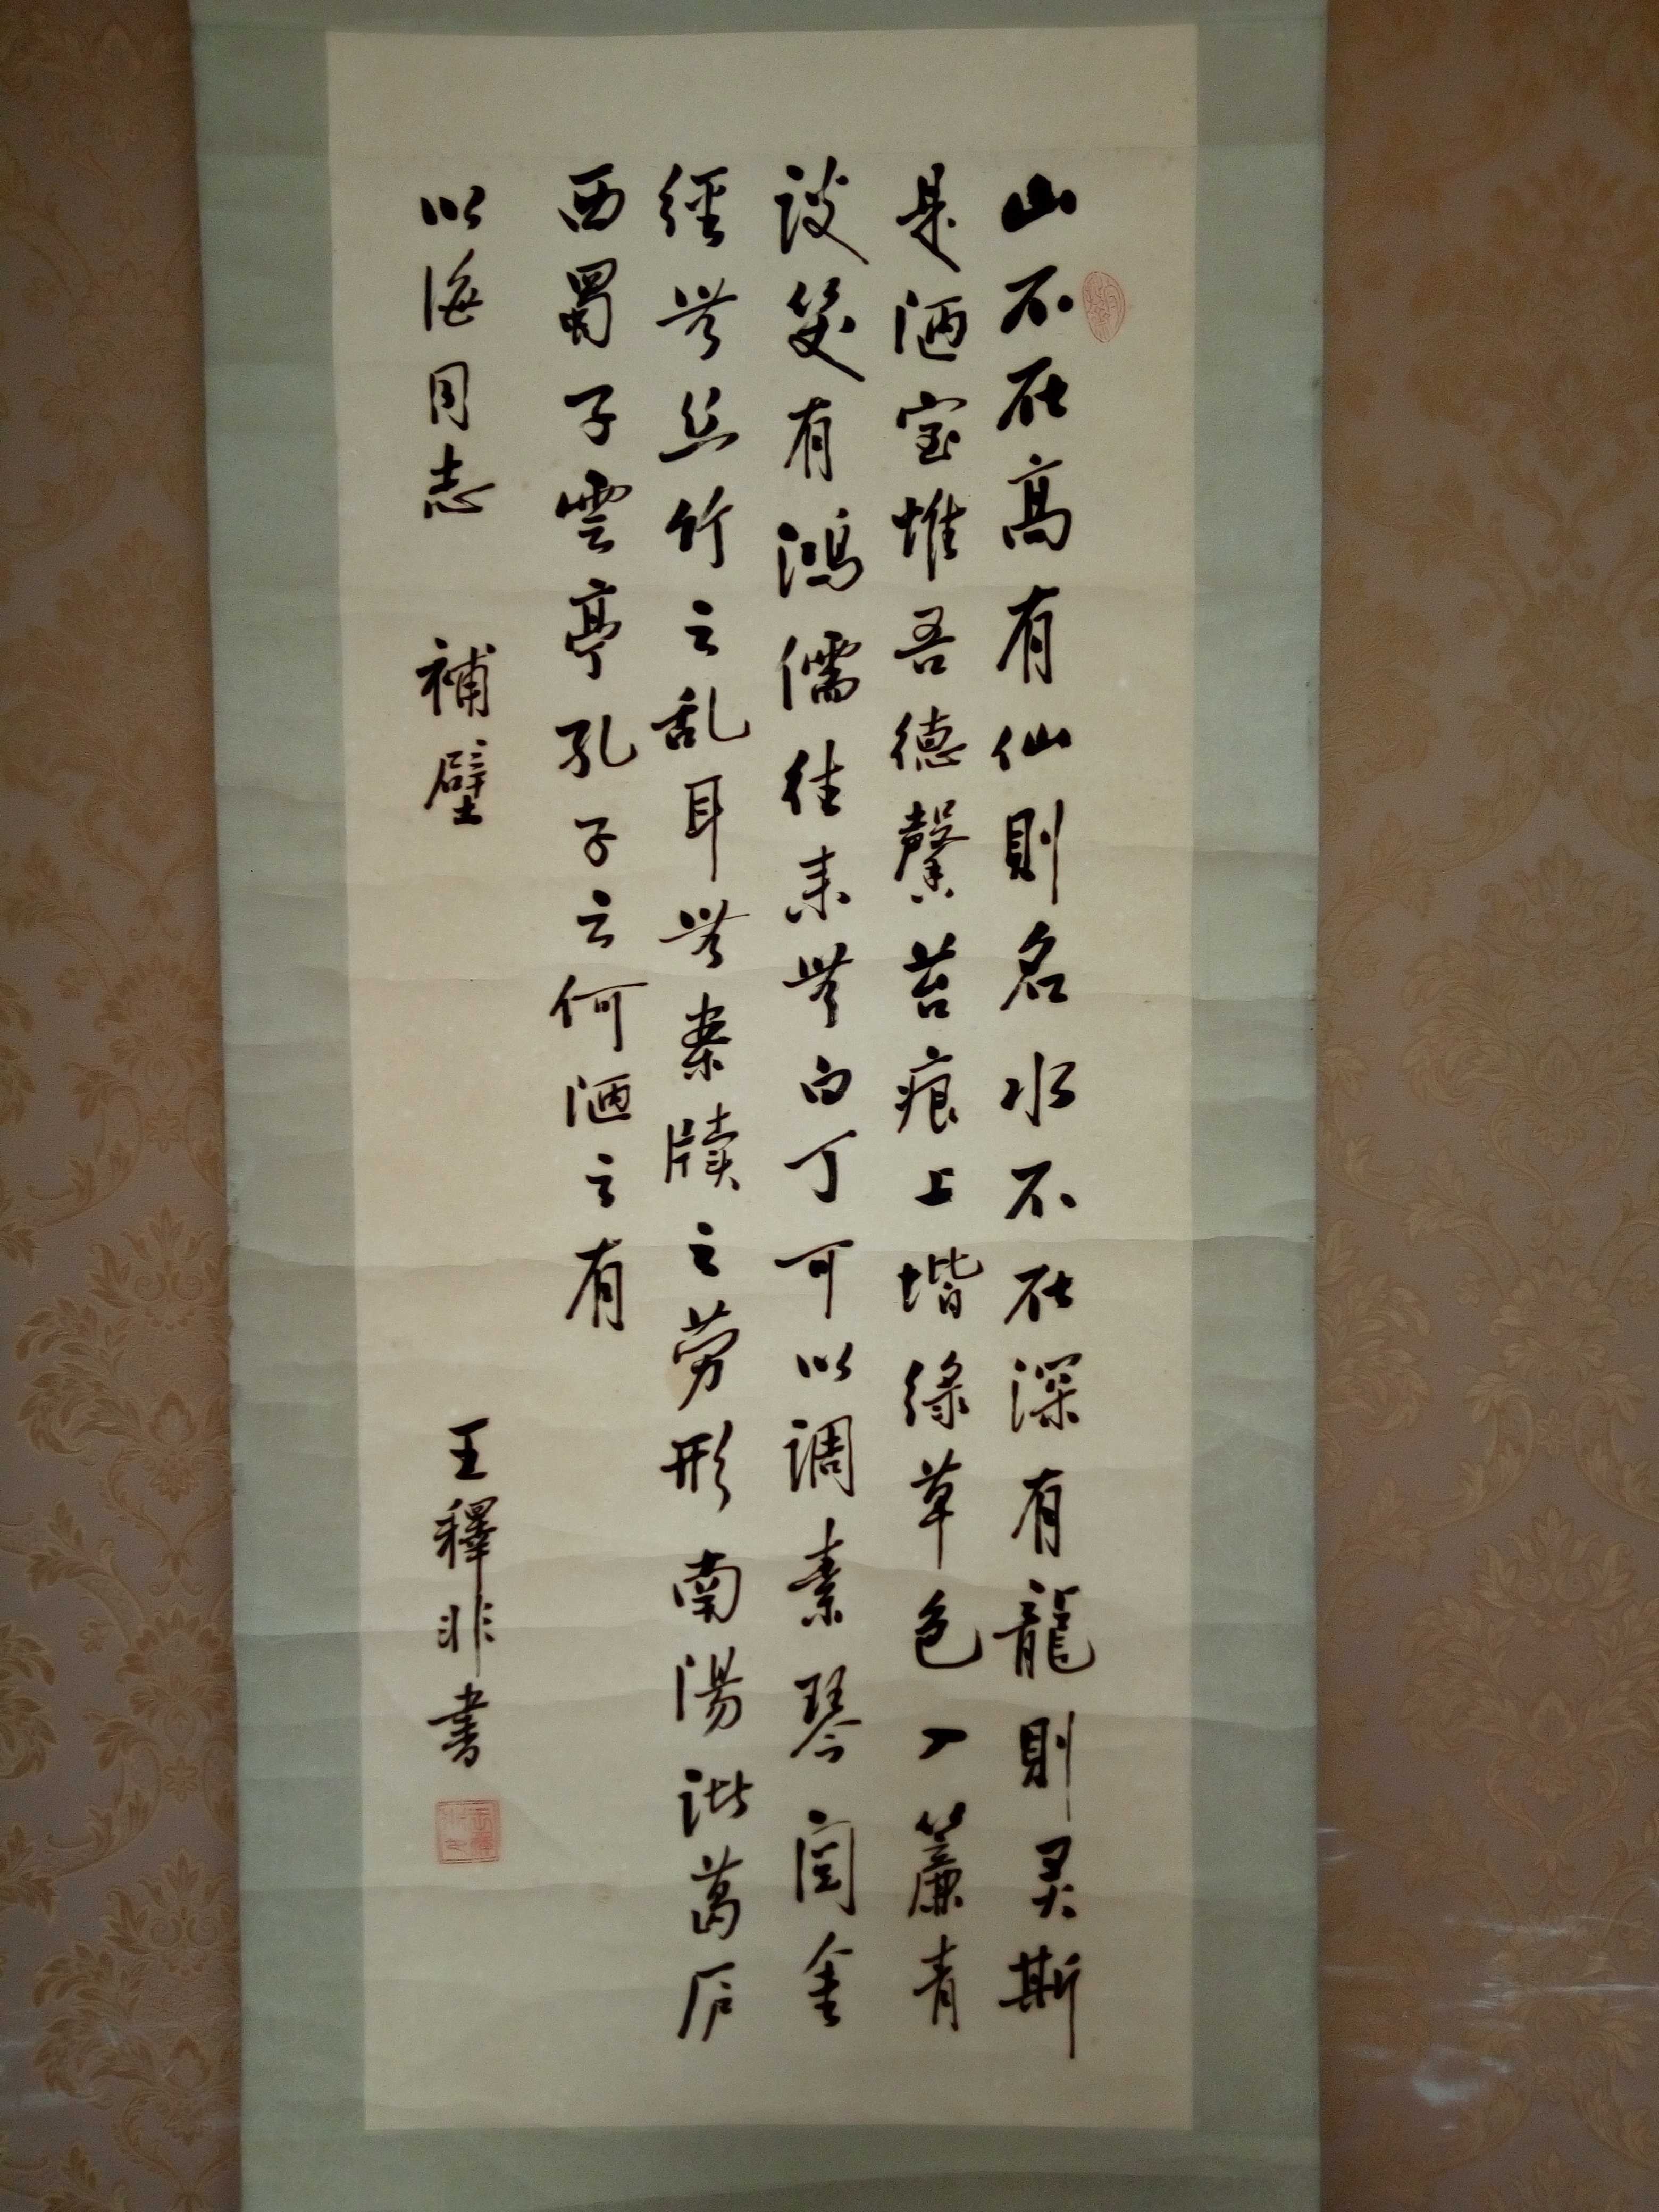 山不在高有仙則名水不在深有龍則灵斯
是陋室惟吾德馨苔痕上堦綠草色入簾青
談笑有鴻儒往来無白丁可以調素琴閱金
經無丝竹之乱耳無案牘之劳形南陽諸葛庐
西蜀子雲亭孔子云何陋之有
以海同志 補壁
王釋非書